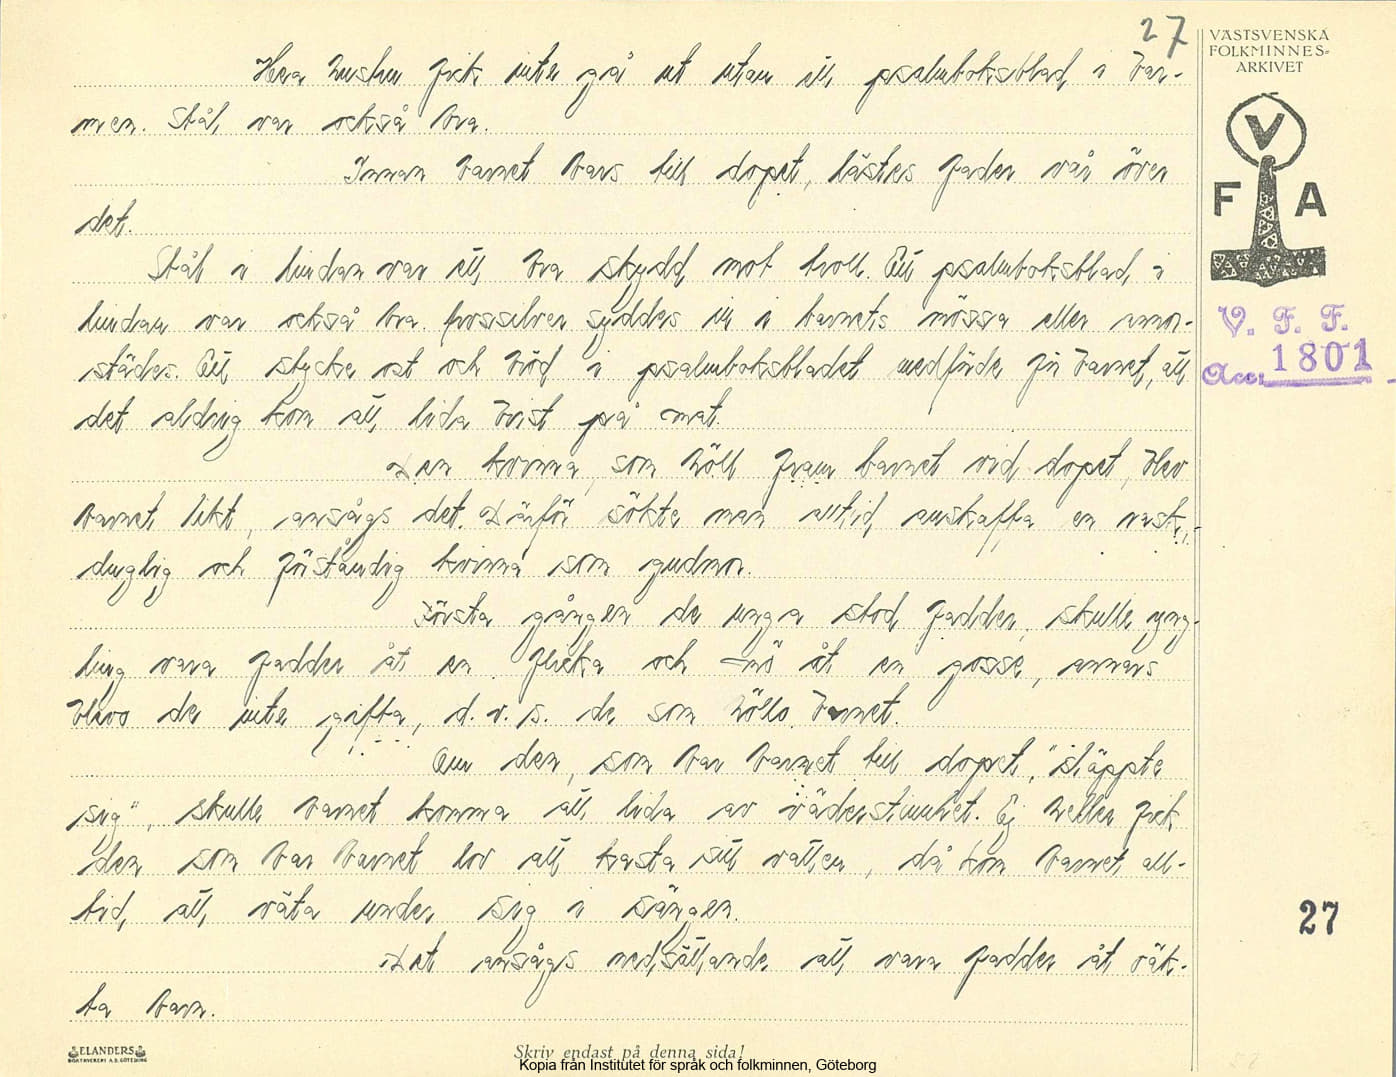 27
Hava hustru fick inte gå ut utan ett psalmboksblad i bar-
men. Stål var också bra.
Innan barnet bars till dopet, lästes Fader vår över
det.
Stål i lindan var ett bra skydd mot troll. Ett psalmboksblad i
lindan var också bra. Korssilver syddes in i barnets mössa eller annor-
städes. Ett stycke ost och bröd i psalmboksbladet medförde för barnet, att
det aldrig kom att lida brist på mat.
Den kvinna, som höll fram barnet vid dopet, blev
barnet likt, ansågs det. Därför sökte man alltid anskaffa en rask,
duglig och förståndig kvinna som gudmor.
Första gången de unga stod fadder, skulle yng-
ling vara fadder åt en flicka och mö åt en gosse, annars
blevo de inte gifta, d.v.s. de som höllo barnet.
Om den, som bar barnet till dopet, "släppte
sig", skulle barnet komma att lida av väderstinnhet. Ej heller fick
den som bar barnet lov att kasta sitt vatten, då kom barnet all-
tid att väta under sig i sängen.
Det ansågs nedsättande att vara fadder åt oäk-
ta barn.
VÄSTSVENSKA
FOLKMINNES-
ARKIVET
V
F A
V. F. F.
Acc: 1801
27
ELANDERS
BOKTRYCKERI A.B. GÖTEBORG
Skriv endast på denna sida!
Kopia från Institutet för språk och folkminnen, Göteborg